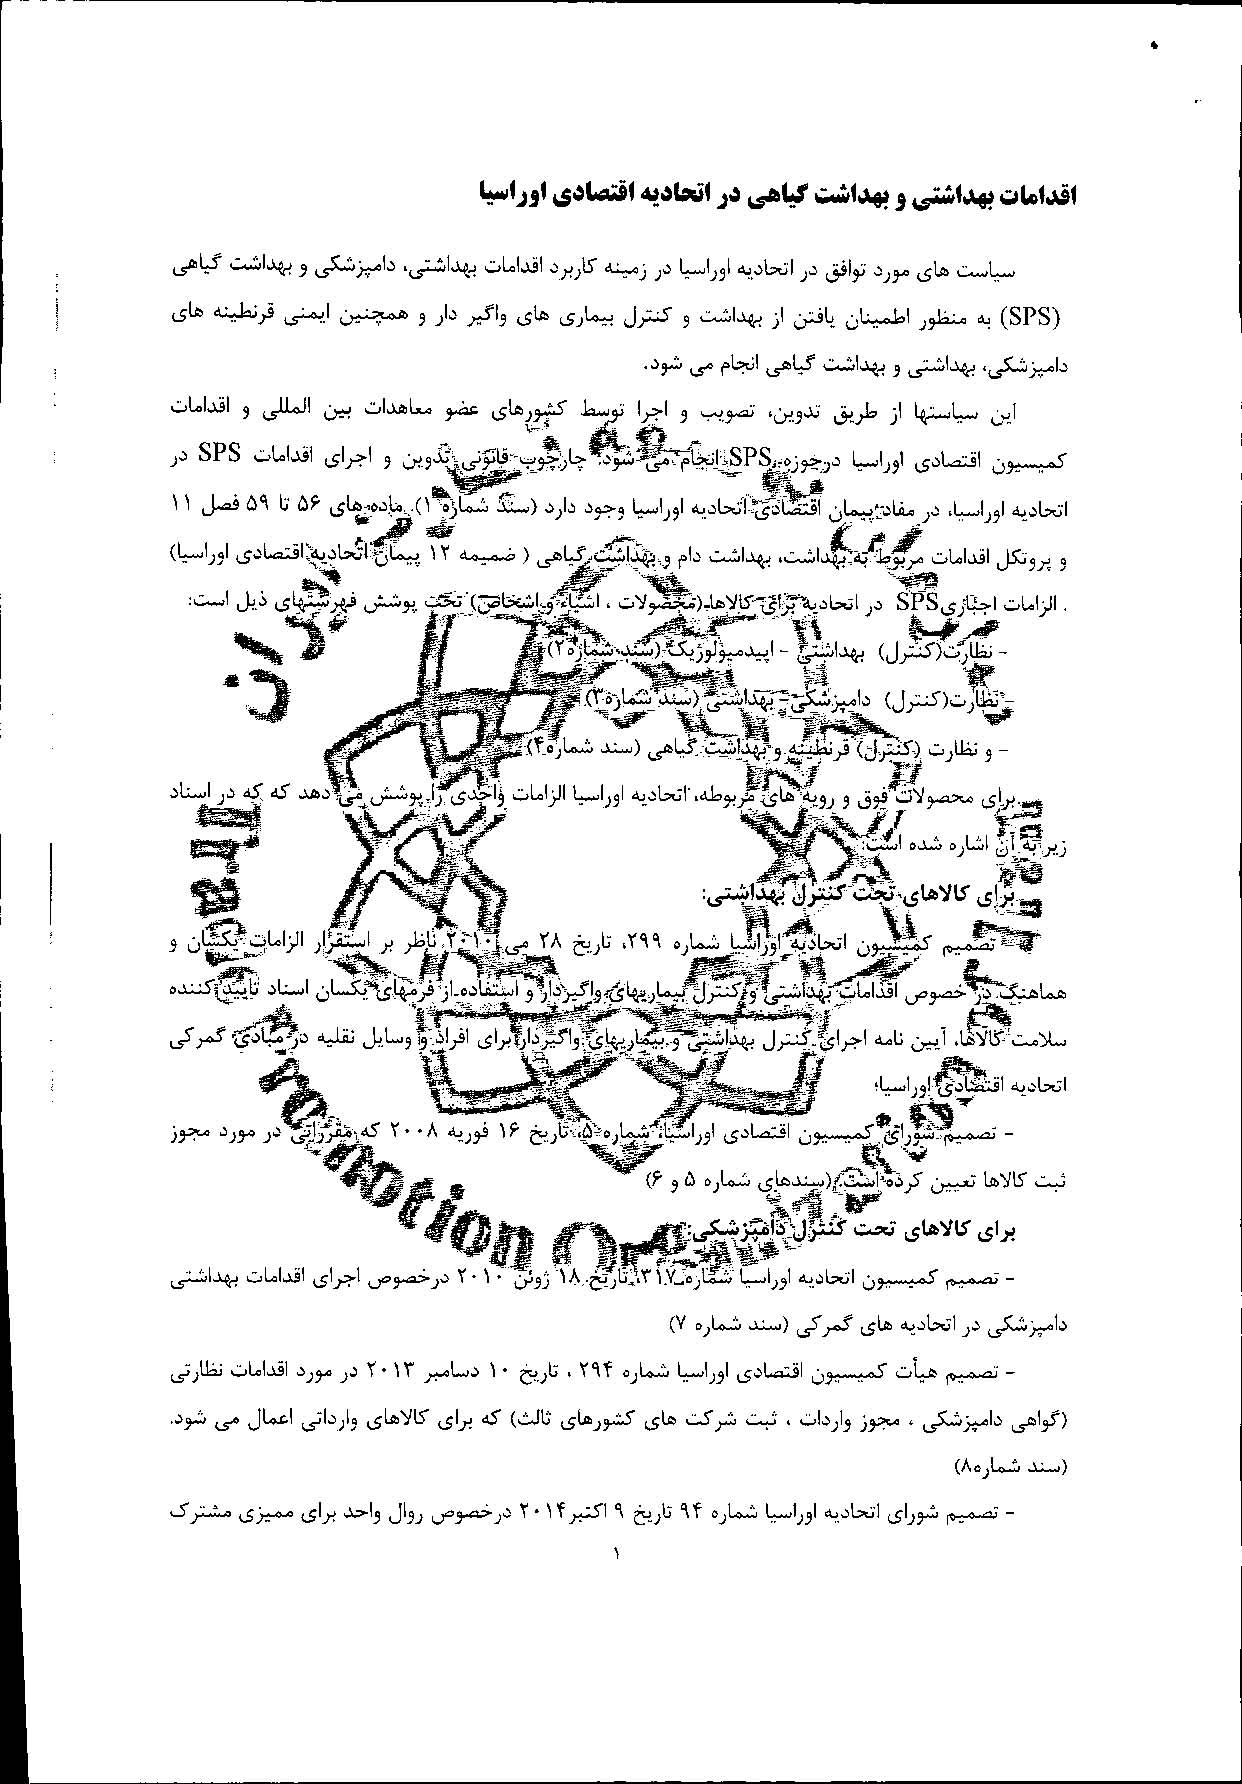 اقدامات بهداشتی و بهداشت گیاهی در اتحادیه اقتصادی اوراسیا
سیاست های مورد توافق در اتحادیه اوراسیا در زمینه کاربرد اقدامات بهداشتی، دامپزشکی و بهداشت گیاهی
(SPS) به منظور اطمینان یافتن از بهداشت و کنترل بیماری های واگیر دار و همچنین ایمنی قرنطینه های
دامپزشکی، بهداشتی و بهداشت گیاهی انجام می شود.
این سیاستها از طریق تدوین، تصویب و اجرا توسط کشورهای عضو معاهدات بین المللی و اقدامات
کمیسیون اقتصادی اوراسیا درحوزه SPS انجام می شود. چارچوب قانونی تدوین و اجرای اقدامات SPS در
اتحادیه اوراسیا، در مفاد پیمان اقتصادی اتحادیه اوراسیا وجود دارد (سند شماره ۱). ماده های ۵۶ تا ۵۹ فصل ۱۱
و پروتکل اقدامات مربوط به بهداشت، بهداشت دام و بهداشت گیاهی ( ضمیمه ۱۲ پیمان اتحادیه اقتصادی اوراسیا)
. الزامات اجباری SPS در اتحادیه برای کالاها (محصولات ، اشیاء و اشخاص) تحت پوشش فهرستهای ذیل است:
- نظارت(کنترل) بهداشتی - اپیدمیولوژیک (سند شماره ۲)
- نظارت(کنترل) دامپزشکی - بهداشتی (سند شماره ۳)
- و نظارت (کنترل) قرنطینه و بهداشت گیاهی (سند شماره ۴)
برای محصولات فوق و رویه های مربوطه، اتحادیه اوراسیا الزامات واحدی را پوشش می دهد که که در اسناد
زیر به آن اشاره شده است:
برای کالاهای تحت کنترل بهداشتی:
تصمیم کمیسیون اتحادیه اوراسیا شماره ۲۹۹، تاریخ ۲۸ می ۲۰۱۰ ناظر بر استقرار الزامات یکسان و
هماهنگ در خصوص اقدامات بهداشتی و کنترل بیماریهای واگیردار و استفاده از فرمهای یکسان اسناد تایید کننده
سلامت کالاها، آیین نامه اجرای کنترل بهداشتی و بیماریهای واگیردار برای افراد و وسایل نقلیه در مبادی گمرکی
اتحادیه اقتصادی اوراسیا؛
- تصمیم شورای کمیسیون اقتصادی اوراسیا، شماره ۵، تاریخ ۱۶ فوریه ۲۰۰۸ که مقرراتی در مورد مجوز
ثبت کالاها تعیین کرده است.(سندهای شماره ۵ و ۶)
برای کالاهای تحت کنترل دامپزشکی:
- تصمیم کمیسیون اتحادیه اوراسیا شماره ۳۱۷، تاریخ ۱۸ ژوئن ۲۰۱۰ درخصوص اجرای اقدامات بهداشتی
دامپزشکی در اتحادیه های گمرکی (سند شماره ۷)
- تصمیم هیأت کمیسیون اقتصادی اوراسیا شماره ۲۹۴ ، تاریخ ۱۰ دسامبر ۲۰۱۳ در مورد اقدامات نظارتی
(گواهی دامپزشکی ، مجوز واردات ، ثبت شرکت های کشورهای ثالث) که برای کالاهای وارداتی اعمال می شود.
(سند شماره۸)
- تصمیم شورای اتحادیه اوراسیا شماره ۹۴ تاریخ ۹ اکتبر ۲۰۱۴ درخصوص روال واحد برای ممیزی مشترک
۱